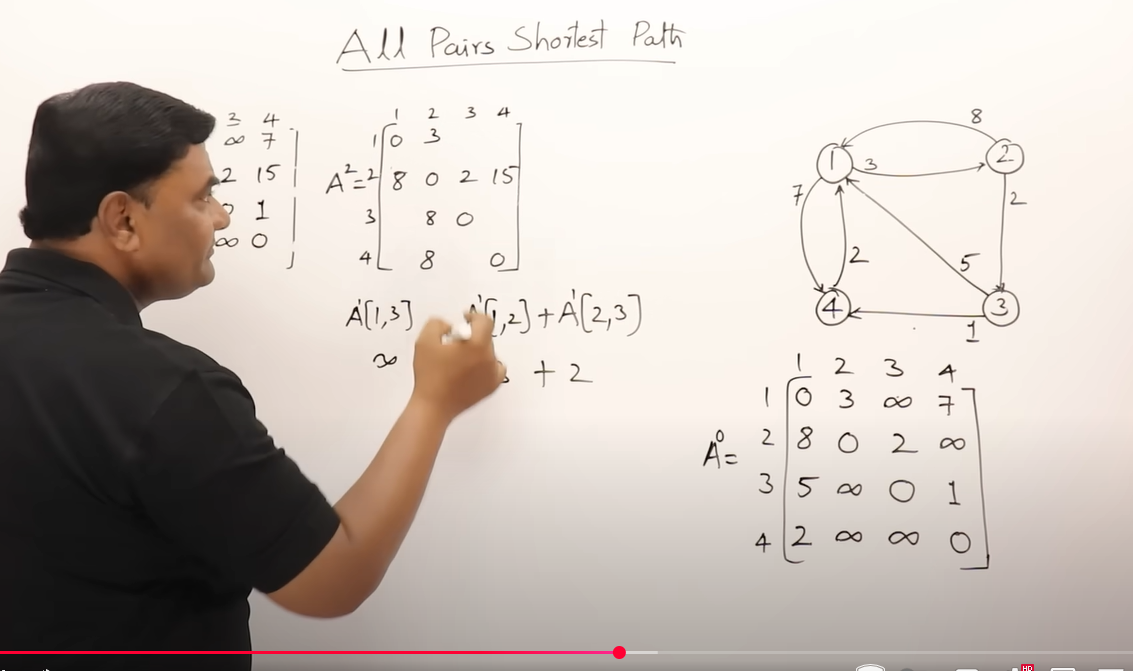 All Pairs Shortest Path
3 4
∞ 7
2 15
1
∞ 0
1 2 3 4
1 0 3
A²= 2 8 0 2 15
3 8 0
4 8 0
A¹[1,3] ,2] + A¹[2,3]
∞ + 2
8
1 3 2
7 2
2 5
4 3
1
1 2 3 4
1 0 3 ∞ 7
A⁰= 2 8 0 2 ∞
3 5 ∞ 0 1
4 2 ∞ ∞ 0
HD